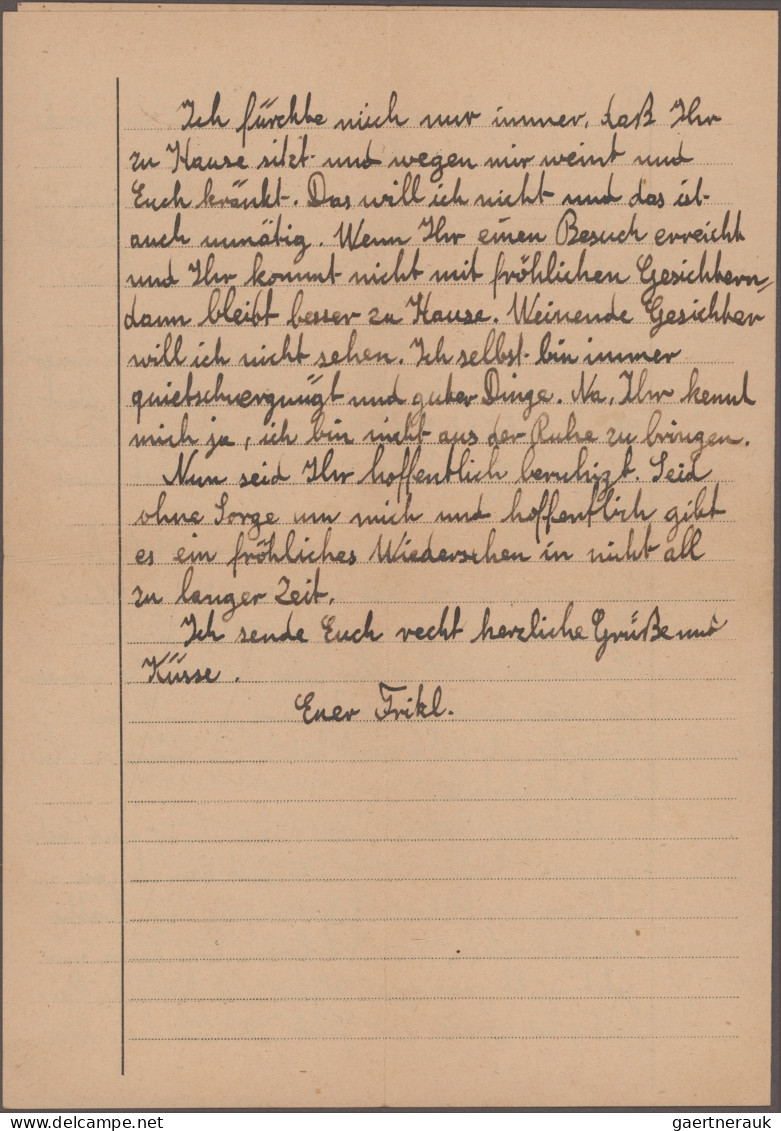 Ich fürchte mich nur immer, daß Ihr
zu Hause sitzt und wegen mir weint und
Euch kränkt. Das will ich nicht und das ist
auch unnötig. Wenn Ihr einen Besuch erreicht
und Ihr kommt nicht mit fröhlichen Gesichtern=
dann bleibt besser zu Hause. Weinende Gesichter
will ich nicht sehen. Ich selbst bin immer
quietschvergnügt und guter Dinge. Na, Ihr kennt
mich ja, ich bin nicht aus der Ruhe zu bringen.
Nun seid Ihr hoffentlich beruhigt. Seid
ohne Sorge um mich und hoffentlich gibt
es ein fröhliches Wiedersehen in nicht all
zu langer Zeit.
Ich sende Euch recht herzliche Grüße und
Küsse.
Euer Frikl.
gaertnerauk